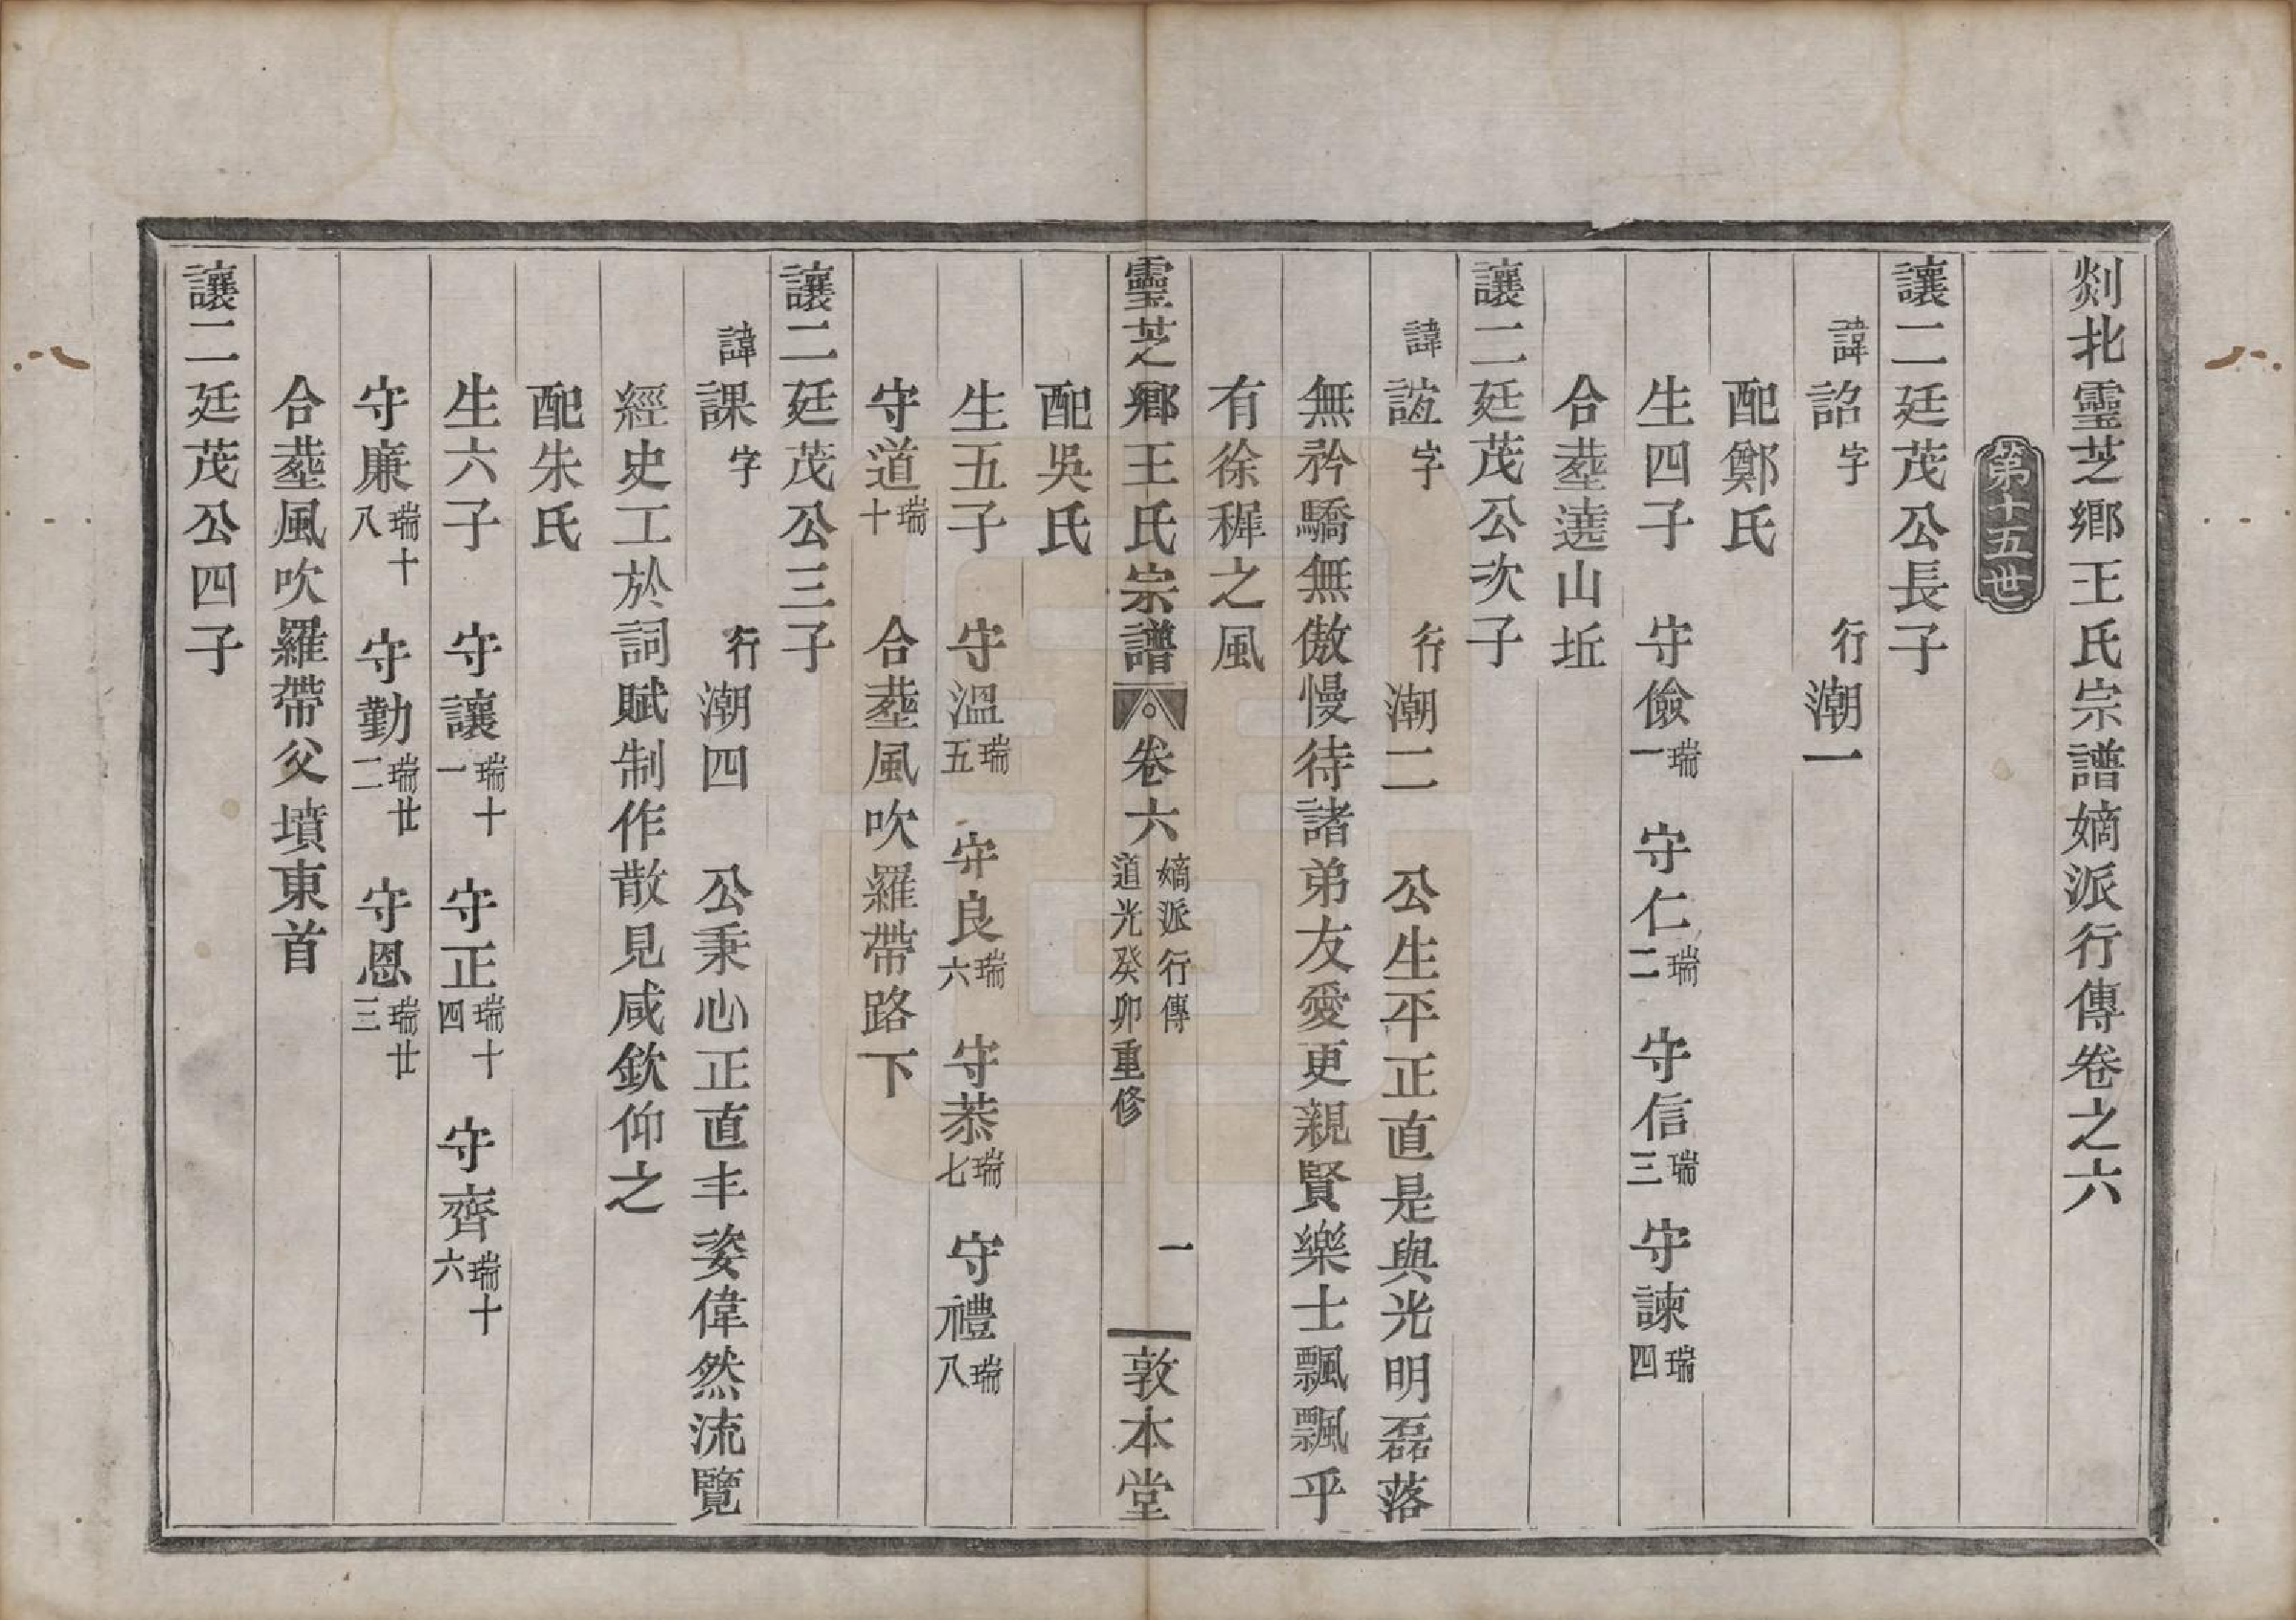 剡北靈芝鄉王氏宗譜嫡派行傳卷之六
第十五世
讓二廷茂公長子
諱詔字 行潮一
配鄭氏
生四子 守儉瑞一 守仁瑞二 守信瑞三 守諫瑞四
合塟遶山坵
讓二廷茂公次子
諱誼字 行潮二 公生平正直是與光明磊落
無矜驕無傲慢待諸弟友愛更親賢樂士飄飄乎
有徐穉之風
靈芝鄉王氏宗譜 卷六 嫡派行傳 道光癸卯重修 一 敦本堂
配吳氏
生五子 守溫瑞五 守良瑞六 守恭瑞七 守禮瑞八
守道瑞十 合塟風吹羅帶路下
讓二廷茂公三子
諱課字 行潮四 公秉心正直丰姿偉然流覽
經史工於詞賦制作散見咸欽仰之
配朱氏
生六子 守讓瑞十一 守正瑞十四 守齊瑞十六
守廉瑞十八 守勤瑞廿二 守恩瑞廿三
合塟風吹羅帶父墳東首
讓二廷茂公四子